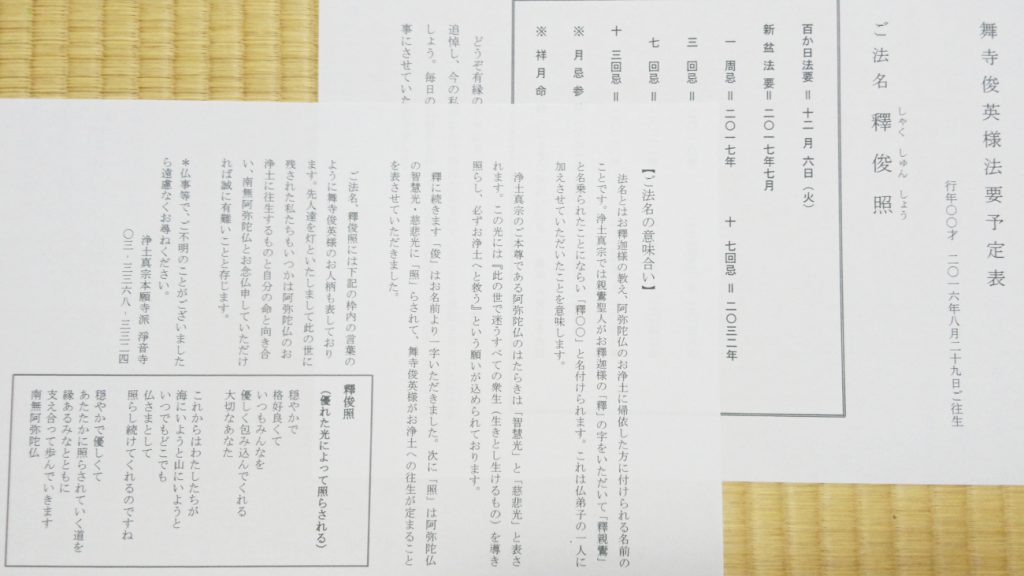 舞寺俊英様法要予定表
行年〇〇才　二〇一六年八月二十九日ご往生
ご法名　釋　俊　照
しゃく　しゅん　しょう
百か日法要＝十二月六日（火）
新盆法要＝二〇一七年七月
一周忌＝二〇一七年　十七回忌＝二〇三二年
三回忌＝
七回忌＝
十三回忌＝
※月忌参
※祥月命
どうぞ有縁の
追悼し、今の私
しょう。毎日の
事にさせていた
【ご法名の意味合い】
法名とはお釈迦様の教え、阿弥陀仏のお浄土に帰依した方に付けられる名前の
ことです。浄土真宗では親鸞聖人がお釋迦様の「釋」の字をいただいて「釋親鸞」
と名乗られたことにならい「釋〇〇」と名付けられます。これは仏弟子の一人に
加えさせていただいたことを意味します。
浄土真宗のご本尊である阿弥陀仏のはたらきは「智慧光」と「慈悲光」と表さ
れます。この光には『此の世で迷うすべての衆生（生きとし生けるもの）を導き
照らし、必ずお浄土へと救う』という願いが込められております。
釋に続きます「俊」はお名前より一字いただきました。次に「照」は阿弥陀仏
の智慧光・慈悲光に「照」らされて、舞寺俊英様がお浄土への往生が定まること
を表させていただきました。
ご法名、釋俊照には下記の枠内の言葉の
ように舞寺俊英様のお人柄も表しており
ます。先人達を灯といたしまして此の世に
残された私たちもいつかは阿弥陀仏のお
浄土に往生するものと自分の命と向き合
い、南無阿弥陀仏とお念仏申していただけ
れば誠に有難いことと存じます。
＊仏事等で、ご不明のことがございました
ら遠慮なくお尋ねください。
浄土真宗本願寺派　淨音寺
〇三‐三三六八‐三三二四
釋俊照
（優れた光によって照らされる）
穏やかで
格好良くて
いつもみんなを
優しく包み込んでくれる
大切なあなた
これからはわたしたちが
海にいようと山にいようと
いつでもどこでも
仏さまとして
照らし続けてくれるのですね
穏やかで優しくて
あたたかに照らされていく道を
縁あるみなとともに
支え合って歩んでいきます
南無阿弥陀仏